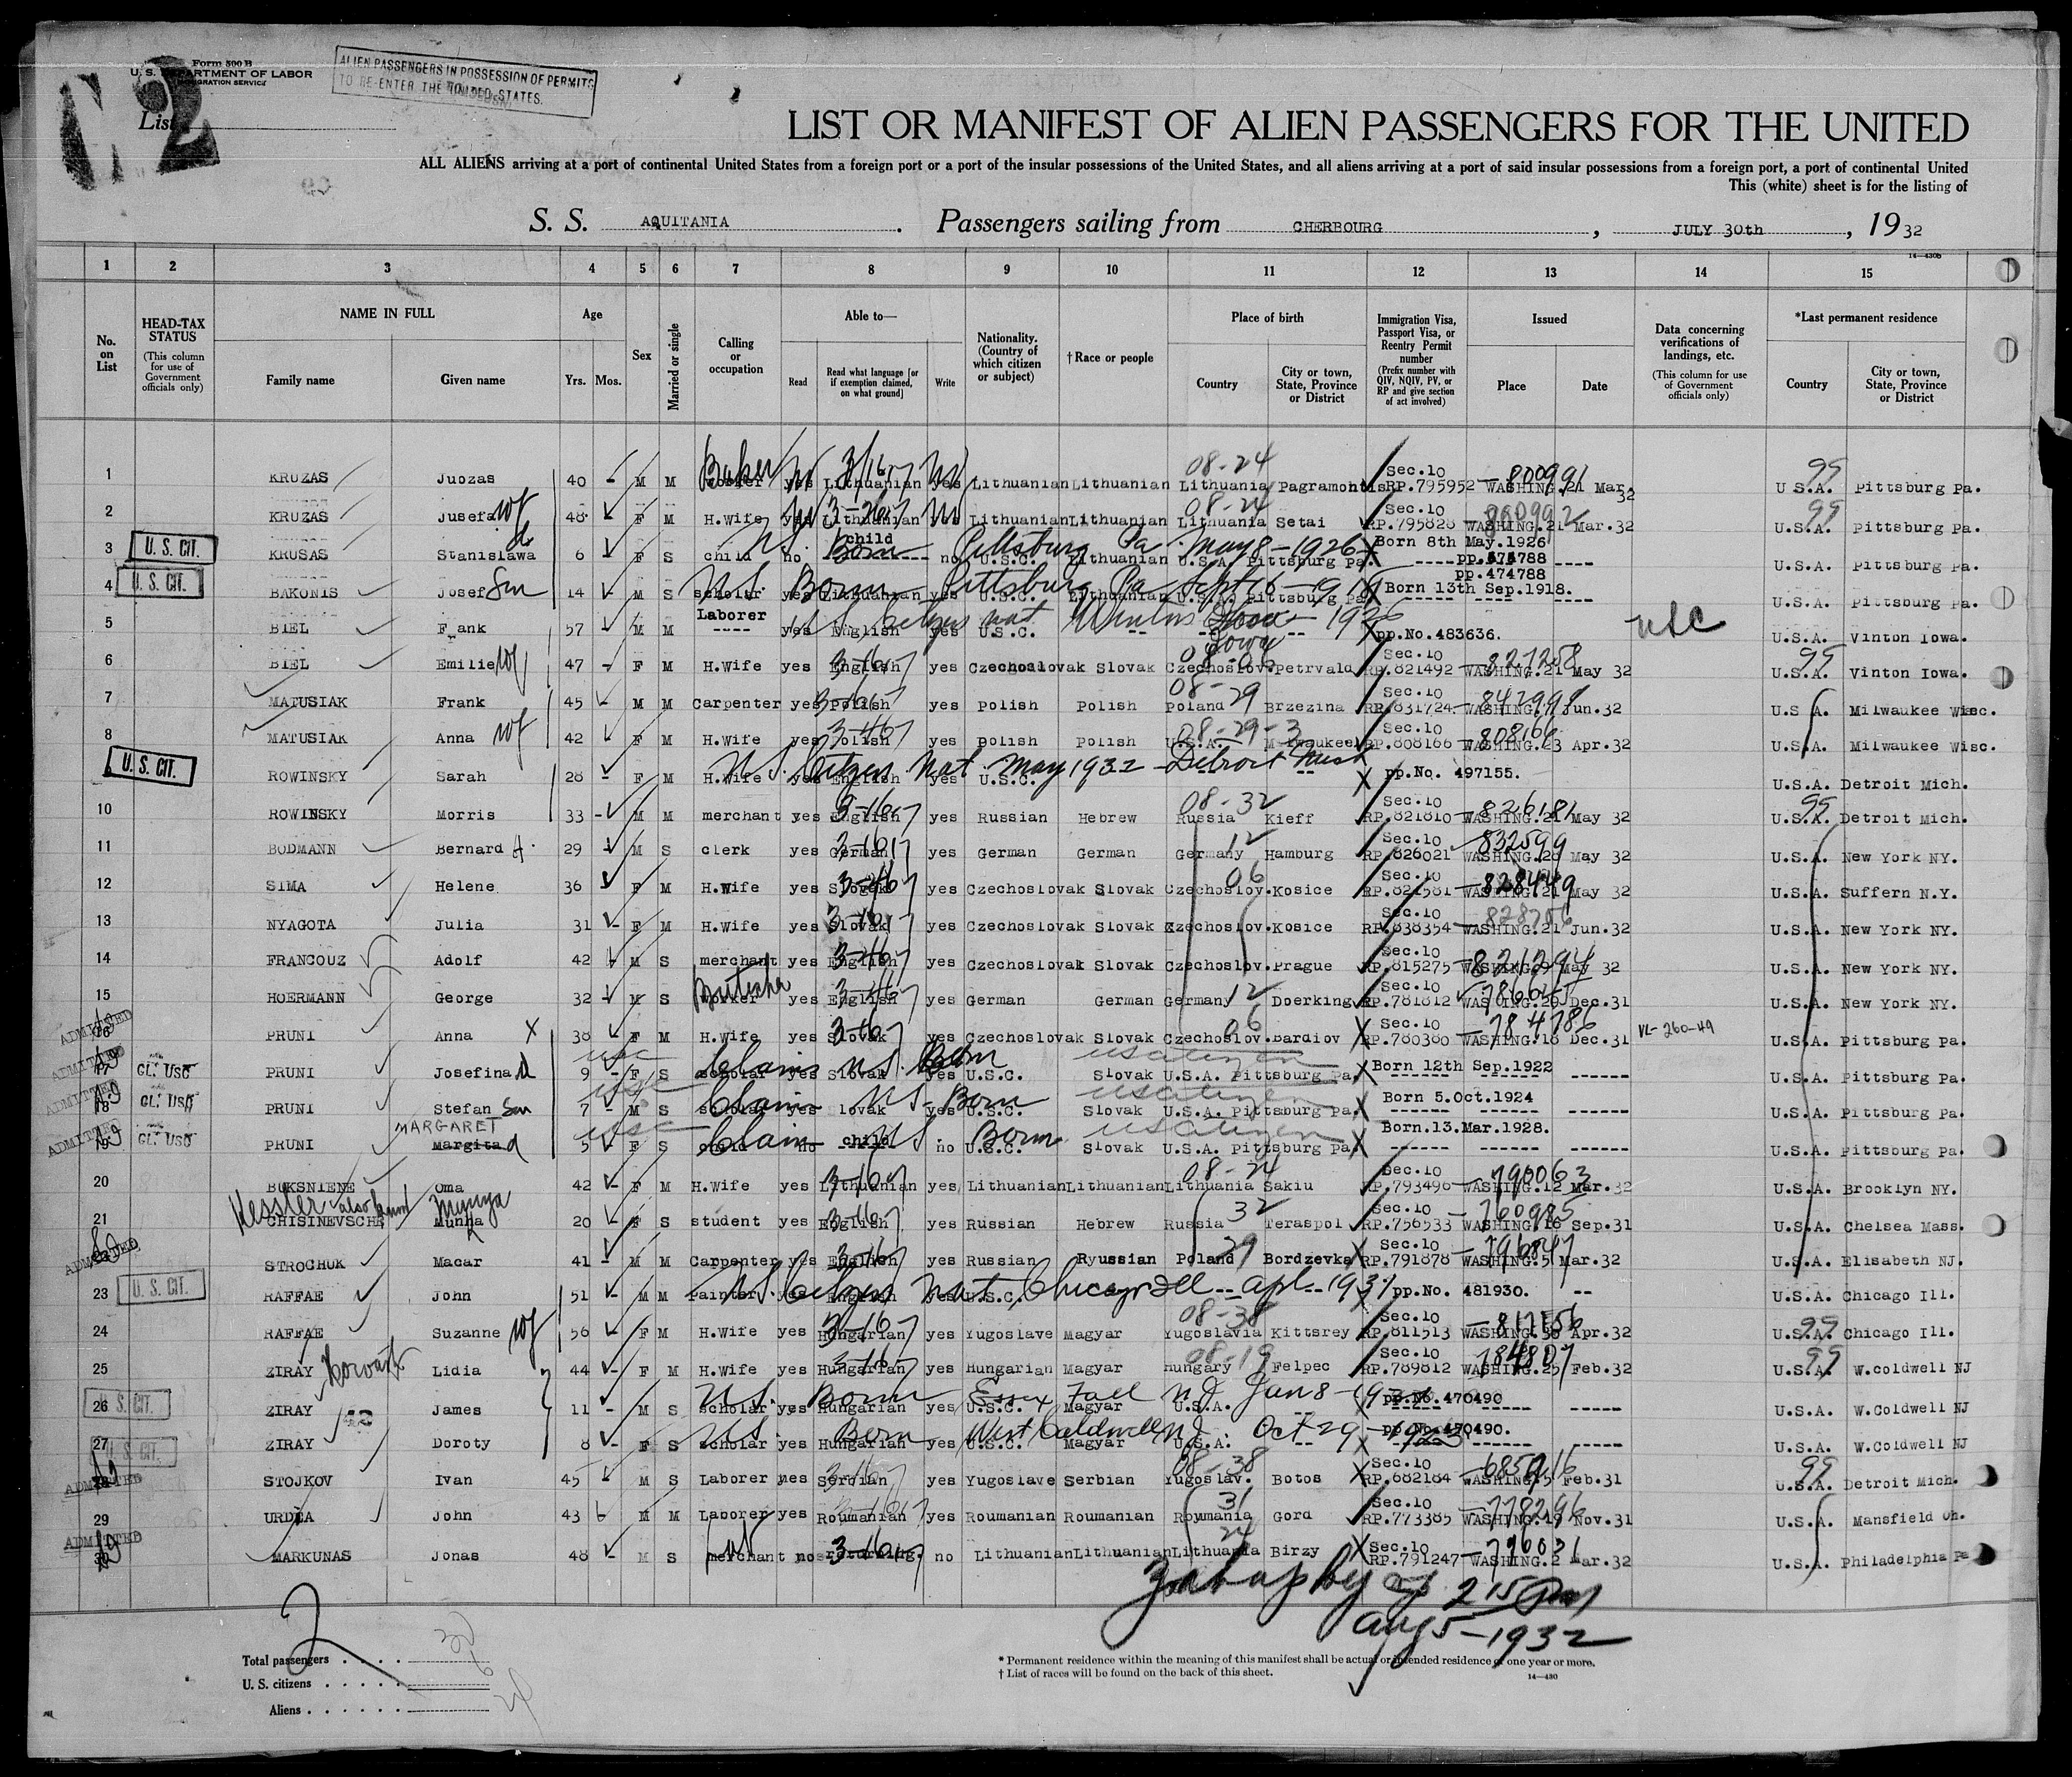 Form 500 B
U. S. DEPARTMENT OF LABOR
IMMIGRATION SERVICE
ALIEN PASSENGERS IN POSSESSION OF PERMITS
TO RE-ENTER THE UNITED STATES.
2
List
LIST OR MANIFEST OF ALIEN PASSENGERS FOR THE UNITED
ALL ALIENS arriving at a port of continental United States from a foreign port or a port of the insular possessions of the United States, and all aliens arriving at a port of said insular possessions from a foreign port, a port of continental United
This (white) sheet is for the listing of
S. S. AQUITANIA . Passengers sailing from CHERBOURG , JULY 30th , 1932
14—430b
1 2 3 4 5 6 7 8 9 10 11 12 13 14 15
No. on List
HEAD-TAX STATUS (This column for use of Government officials only)
NAME IN FULL Family name Given name
Age Yrs. Mos.
Sex
Married or single
Calling or occupation
Able to— Read Read what language [or if exemption claimed, on what ground] Write
Nationality. (Country of which citizen or subject)
†Race or people
Place of birth Country City or town, State, Province or District
Immigration Visa, Passport Visa, or Reentry Permit number (Prefix number with QIV, NQIV, PV, or RP and give section of act involved)
Issued Place Date
Data concerning verifications of landings, etc. (This column for use of Government officials only)
*Last permanent residence Country City or town, State, Province or District
1 KRUZAS Juozas 40 - M M Baker yes Lithuanian yes Lithuanian Lithuanian Lithuania 08-24 Sec.10 RP.795952 WASHING.21 Mar. 32 80099 U S.A. 99 Pittsburg Pa.
2 KRUZAS Jusefa wf 48 - F M H.Wife yes Lithuanian yes Lithuanian Lithuanian Lithuania Setai 08-24 Sec.10 RP.795828 WASHING.21 Mar.32 U.S.A. 99 Pittsburg Pa.
3 U. S. CIT. KRUSAS Stanislawa d 6 F S child no child no U.S.C. Lithuanian U.S.A. Pittsburg Pa. Born 8th May.1926 U.S. Born Pittsburg Pa May 8-1926 U.S.A. Pittsburg Pa.
4 U. S. CIT. BAKONIS Josef Son 14 - M S scholar yes Lithuanian yes U.S.C. Lithuanian U.S.A. Pittsburg Pa pp.474788 Born 13th Sep.1918. U.S. Born Pittsburg Pa U.S.A. Pittsburg Pa.
5 BIEL Frank 57 - M M Laborer yes English yes U.S.C. -- -- pp.No.483636. Iowa usc U.S.A. Vinton Iowa.
6 BIEL Emilie wf 47 - F M H.Wife yes English yes Czechoslovak Slovak Czechoslov. Petrvald 08-06 Sec.10 RP.821492 WASHING.21 May 32 U.S.A. 99 Vinton Iowa.
7 MATUSIAK Frank 45 M M Carpenter yes Polish yes Polish Polish Poland Brzezina 08-29 Sec.10 RP.831724 WASHING. Jun.32 U.S.A. Milwaukee Wisc.
8 MATUSIAK Anna wf 42 - F M H.Wife yes Polish yes Polish Polish U.S.A. Milwaukee 08-29-3 Sec.10 RP.808166 WASHING. 808166 Apr.32 U.S.A. Milwaukee Wisc.
U. S. CIT. ROWINSKY Sarah 28 - F M H.Wife yes English yes U.S.C. -- pp.No. 497155. U.S. Citizen Nat. May 1932 Detroit Mich U.S.A. Detroit Mich.
10 ROWINSKY Morris 33 - M M merchant yes English yes Russian Hebrew Russia Kieff 08-32 Sec.10 RP.821810 WASHING.21 May 32 826181 U.S.A. 99 Detroit Mich.
11 BODMANN Bernard H. 29 - M S clerk yes German yes German German Germany Hamburg 12 Sec.10 RP.826021 WASHING. May 32 832599 U.S.A. New York NY.
12 SIMA Helene 36 F M H.Wife yes Slovak yes Czechoslovak Slovak Czechoslov. Kosice 06 Sec.10 RP.821581 WASHING.21 May 32 828449 U.S.A. Suffern N.Y.
13 NYAGOTA Julia 31 - F M H.Wife yes Slovak yes Czechoslovak Slovak Czechoslov. Kosice Sec.10 RP.838354 WASHING.21 Jun.32 U.S.A. New York NY.
14 FRANCOUZ Adolf 42 M S merchant yes English yes Czechoslovak Slovak Czechoslov. Prague Sec.10 RP.815275 WASHING. May 32 821294 U.S.A. New York NY.
15 HOERMANN George 32 - M S worker yes English yes German German Germany Doerking 12 Sec.10 RP.781812 WASHING.20 Dec.31 U.S.A. New York NY.
ADMITTED PRUNI Anna X 38 F M H.Wife yes Slovak yes Czechoslovak Slovak Czechoslov. Bardiov 06 Sec.10 RP.780380 WASHING.18 Dec.31 784786 VL-260-49 U.S.A. Pittsburg Pa.
ADMITTED 17 CL: USC PRUNI Josefina d 9 - F S scholar yes Slovak yes U.S.C. Slovak U.S.A. Pittsburg Pa Born 12th Sep.1922 usc Claim U.S. Born us citizen U.S.A. Pittsburg Pa.
ADMITTED 18 CL: USC PRUNI Stefan Son 7 - M S scholar yes Slovak yes U.S.C. Slovak U.S.A. Pittsburg Pa. Born 5.Oct.1924 usc Claim US-Born us citizen U.S.A. Pittsburg Pa.
ADMITTED 19 CL: USC PRUNI MARGARET Margita d 5 F S child no child no U.S.C. Slovak U.S.A. Pittsburg Pa. Born.13.Mar.1928. usc Claim US. Born us citizen U.S.A. Pittsburg Pa.
20 BUKSNIENE Oma 42 - F M H.Wife yes Lithuanian yes Lithuanian Lithuanian Lithuania Sakiu 08-24 Sec.10 RP.793496 WASHING.12 Mar.32 790063 U.S.A. Brooklyn NY.
21 Kessler also known CHISINEVSCHE Munya 20 - F S student yes English yes Russian Hebrew Russia Teraspol 32 Sec.10 RP.756533 WASHING.16 Sep.31 760985 U.S.A. Chelsea Mass.
ADMITTED STROCHUK Macar 41 - M M Carpenter yes English yes Russian Ryussian Poland Bordzevka 29 Sec.10 RP.791878 WASHING.5 Mar.32 796847 U.S.A. Elisabeth NJ.
23 U. S. CIT. RAFFAE John 51 - M M Painter yes English yes U.S.C. pp.No. 481930. -- U.S. Citizen Nat. Chicago Ill Apl - 1931 U.S.A. Chicago Ill.
24 RAFFAE Suzanne wf 56 - F M H.Wife yes Hungarian yes Yugoslave Magyar Yugoslavia Kittsrey 08-38 Sec.10 RP.811513 WASHING.30 Apr.32 U.S.A. 99 Chicago Ill.
25 ZIRAY Horvath Lidia 44 - F M H.Wife yes Hungarian yes Hungarian Magyar Hungary Felpec 08-19 Sec.10 RP.789812 WASHING.25 Feb.32 784807 U.S.A. 99 W.coldwell NJ
26 U. S. CIT. ZIRAY James 11 - M S scholar yes Hungarian yes U.S.C. Magyar U.S.A. pp.No.470490 U.S. Born Essex Fall N.J. Jan 8 U.S.A. W.Coldwell NJ
27 U. S. CIT. ZIRAY Doroty 8 - F S scholar yes Hungarian yes U.S.C. Magyar U.S.A. -- pp.No.470490. US. Born West Caldwell NJ. Oct 29-1923 U.S.A. W.Coldwell NJ
ADMITTED STOJKOV Ivan 45 - M S Laborer yes Serbian yes Yugoslave Serbian Yugoslav. Botos 08-38 Sec.10 RP.682184 WASHING.5 Feb.31 U.S.A. 99 Detroit Mich.
29 URDEA John 43 M M Laborer yes Roumanian yes Roumanian Roumanian Roymania Gord 31 Sec.10 RP.773385 WASHING.19 Nov.31 778296 U.S.A. Mansfield Oh.
ADMITTED 30 MARKUNAS Jonas 48 - M S merchant no returning. no Lithuanian Lithuanian Lithuania Birzy 24 Sec.10 RP.791247 WASHING.2 Mar.32 796031 U.S.A. Philadelphia Pa
2 15 Pm
Aug 5-1932
Total passengers
U. S. citizens
Aliens
* Permanent residence within the meaning of this manifest shall be actual or intended residence of one year or more.
† List of races will be found on the back of this sheet.
14—430